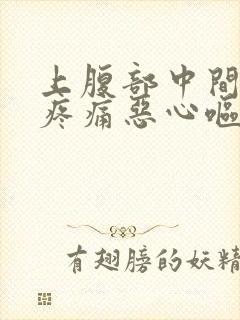 上腹部中間
疼痛惡心嘔
有翅膀的妖精